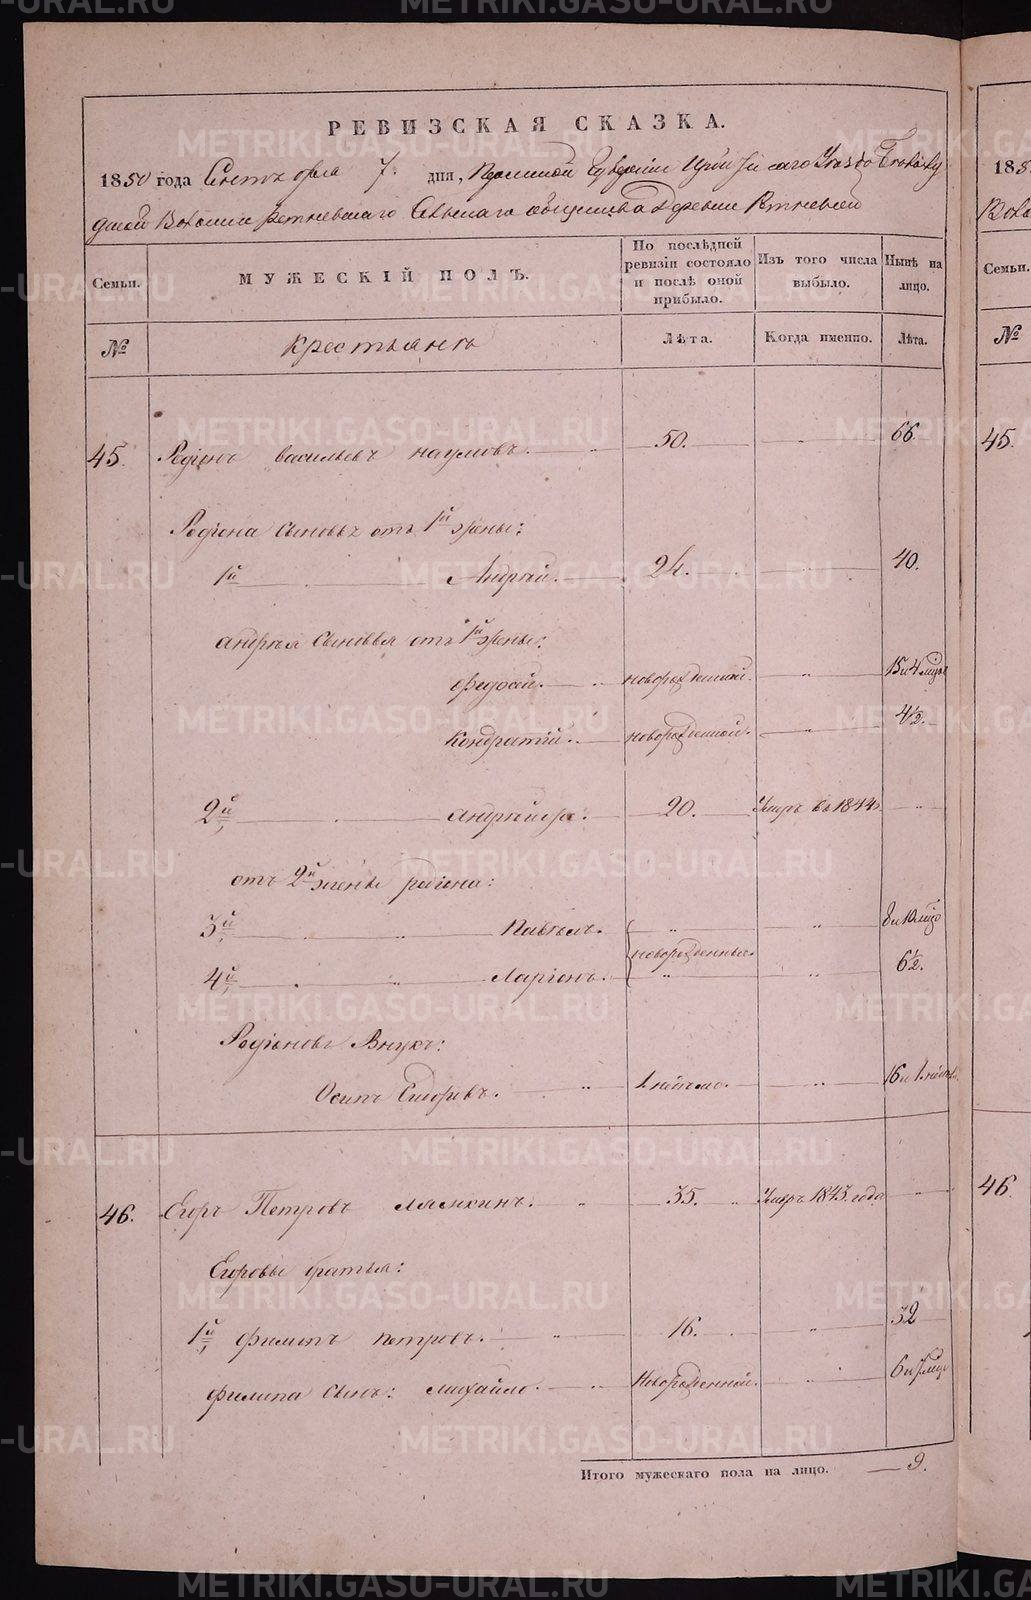 РЕВИЗСКАЯ СКАЗКА.
1850 года Сентября 7. дня, Пермской Губернии Ирбитскаго Уезда
дской Волости Ретневскаго Сельскаго общества Деревни Ретневой
Семьи. МУЖЕСКІЙ ПОЛЪ. По послѣдней ревизіи состояло и послѣ оной прибыло. Изъ того числа выбыло. Нынѣ на лицо.
№ Крестьянъ Лѣта. Когда именно. Лѣта.
45. Родіонъ васильевъ наумовъ. 50. " 66.
Родіона сыновья отъ 1й жены:
1й Андрей. 24. 40.
андрея сыновья отъ 1й жены:
Федосей. новорожденной. " 15 и 4 мцов
Кондратій. новорожденной. " 4½.
2й андрей 20. Умеръ въ 1844 "
отъ 2й жены родіона:
3й Павелъ. " " 8 и 10 мцо
новорожденные.
4й Ларіонъ. " " 6½.
Родіоновъ Внукъ:
Осипъ Сидоровъ. " " 16 и
46. Егоръ Петровъ лямкинъ. " 35. " Умеръ 1843 года "
Егоровы братья:
1й филипъ петровъ. " 16. " 32
филипа сынъ: михайло. " Новорожденной. " 6 и мцо
Итого мужескаго пола на лицо. 9.
1858
Воло
Семьи.
№
45.
46.
METRIKI.GASO-URAL.RU